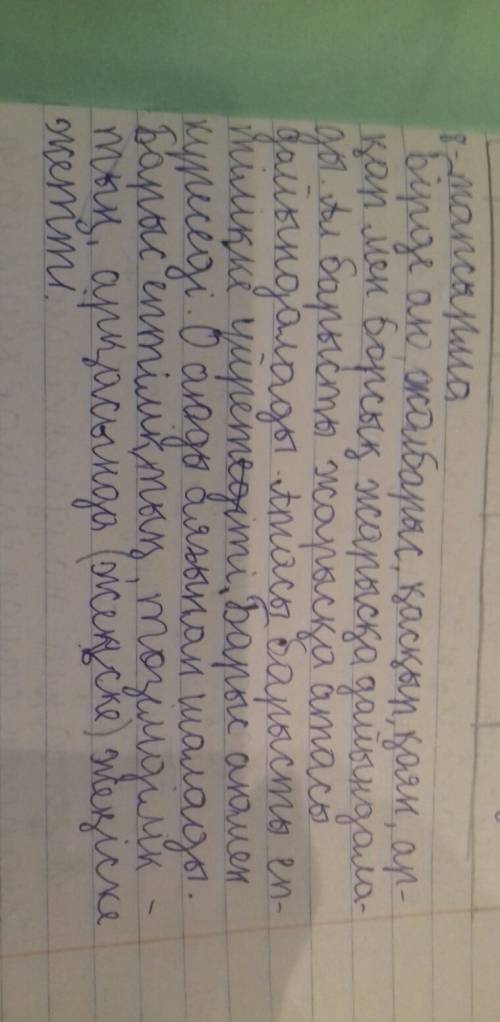 8-тапсырма
Бірде аю, жолбарыс, қасқыр, қоян, ар-
қар мен борсық жарысқа дайындала-
ды. Ал барысты жарысқа атасы
дайындалады. Атасы барысты еп-
тілікке үйретедіті. Барыс аюмен
күреседі. О аюды аяғынан шалады.
Барыс ептіліктың, төзімділік-
тың, арқасында (жеңіске) жеңіске
жетті.